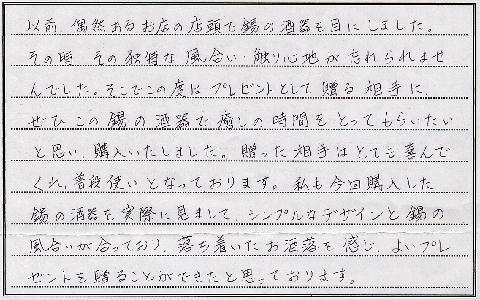 以前 偶然あるお店の店頭で錫の酒器を目にしました。
その時 その独特な風合い・触り心地が忘れられませ
んでした。そこでこの度は プレゼントとして 贈る 相手に、
ぜひ この 錫の 酒器で 癒しの 時間を とって もらいたい
と思い 購入いたしました。 贈った 相手は とても 喜んで
くれ、普段使い となって おります。 私も 今回 購入した
錫の酒器を 実際に 見まして、シンプルな デザインと 錫の
風合いが 合っており、落ち着いた お洒落を 感じ、よいプレ
ゼントを 贈ることができたと思っております。